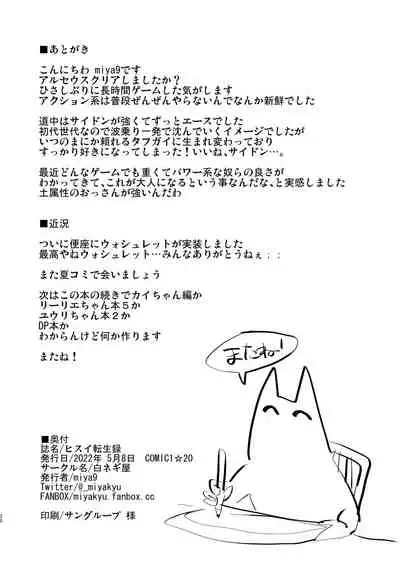 ■あとがき
こんにちわ miya9です
アルセウスクリアしましたか？
ひさしぶりに長時間ゲームした気がします
アクション系は普段ぜんぜんやらないんでなんか新鮮でした
道中はサイドンが強くてずっとエースでした
初代世代なので波乗り一発で沈んでいくイメージでしたが
いつのまにか頼れるタフガイに生まれ変わっており
すっかり好きになってしまった！いいね、サイドン…。
最近どんなゲームでも重くてパワー系な奴らの良さが
わかってきて、これが大人になるという事なんだな、と実感しました
土属性のおっさんが強いんだわ
■近況
ついに便座にウォシュレットが実装しました
最高やねウォシュレット…みんなありがとうねぇ；；
また夏コミで会いましょう
次はこの本の続きでカイちゃん編か
リーリエちゃん本５か
ユウリちゃん本２か
DP本か
わからんけど何か作ります
またね！
またね！
■奥付
誌名/ヒスイ転生録
発行日/2022年 5月8日　COMIC1☆20
サークル名/白ネギ屋
発行者/miya9
Twitter/@_miyakyu
FANBOX/miyakyu.fanbox.cc
印刷/サングループ 様